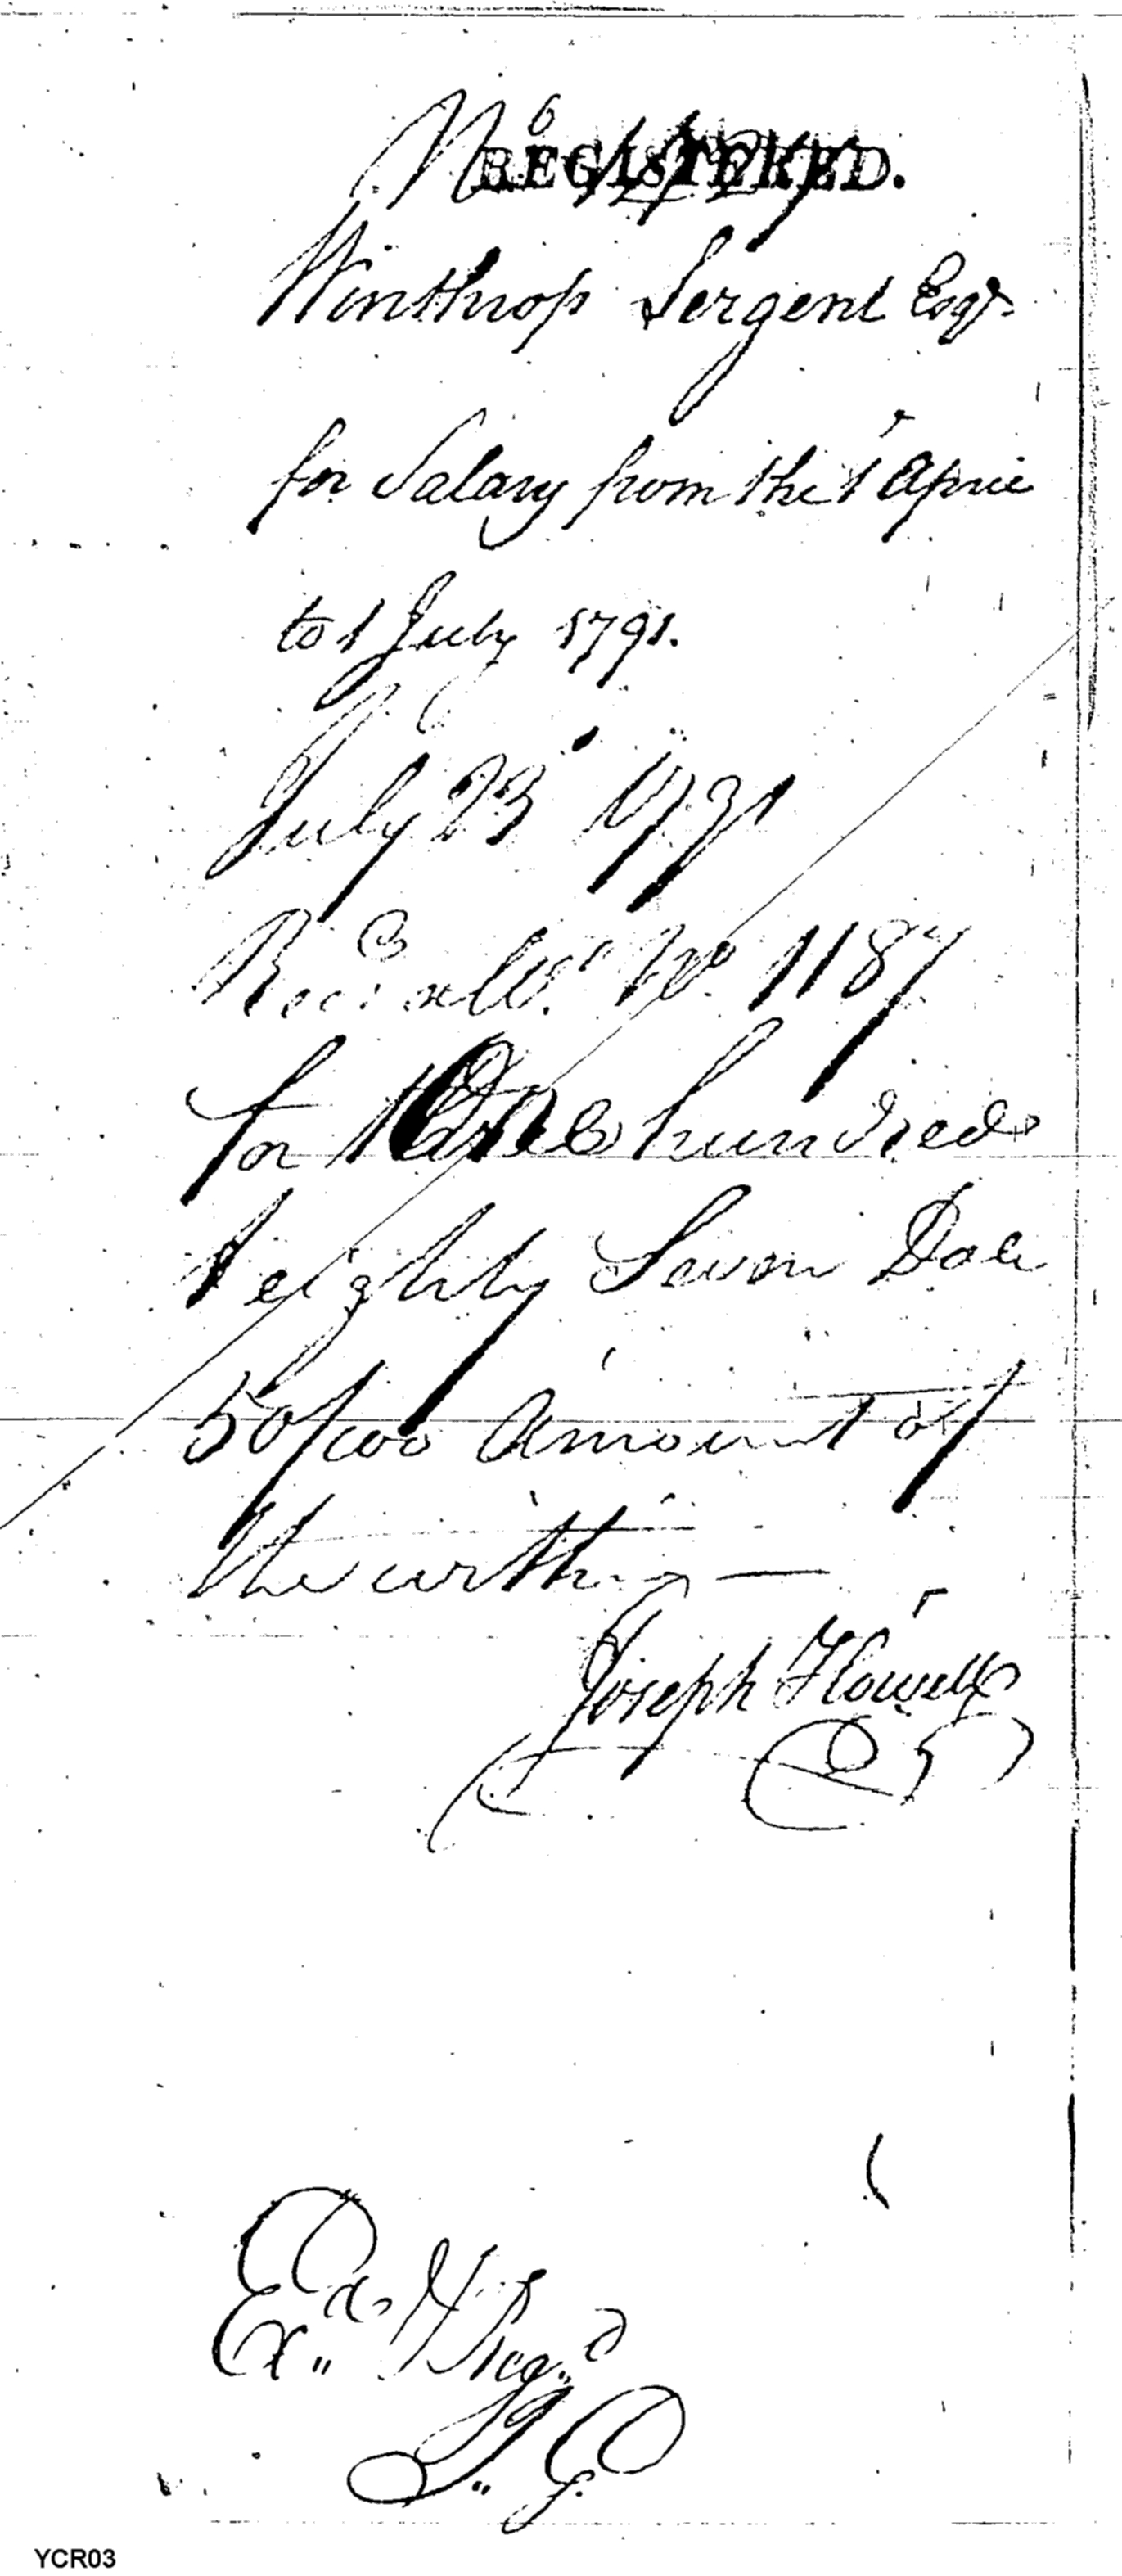 No
REGISTERED.
Winthrop Sergent Esqr
for Salary from the 1 April
to 1 July 1791.
July 23 1791
Recd Wt. No. 1187
for One hundred
& eighty Seven Dolls
50/100 amount of
the within —
Joseph Howell
Exd & Regd
YCR03